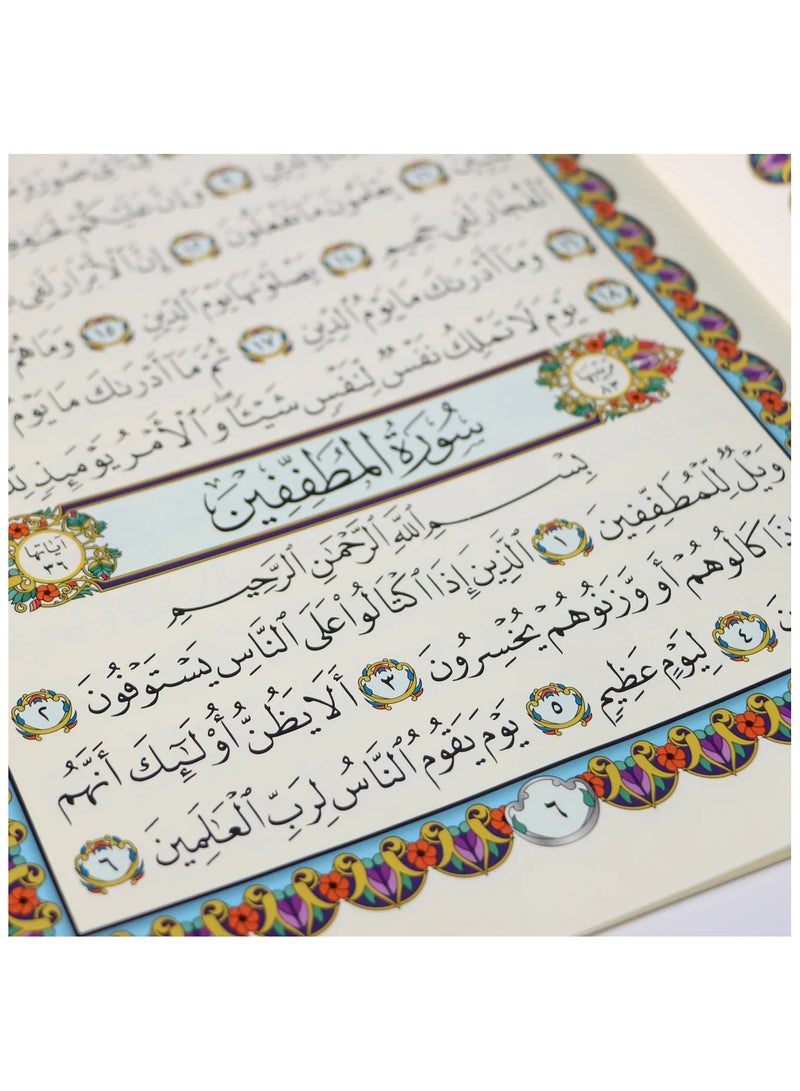 وَإِنَّ عَلَيْكُمْ
يَعْلَمُونَ مَا تَفْعَلُونَ ١٢ إِنَّ ٱلْأَبْرَارَ لَفِى
ٱلْفُجَّارَ لَفِى جَحِيمٍ ١٤ يَصْلَوْنَهَا يَوْمَ ٱلدِّينِ ١٥ وَمَا هُمْ
١٦ وَمَآ أَدْرَىٰكَ مَا يَوْمُ ٱلدِّينِ ١٧ ثُمَّ مَآ أَدْرَىٰكَ مَا يَوْمُ
١٨ يَوْمَ لَا تَمْلِكُ نَفْسٌ لِّنَفْسٍ شَيْـًٔا ۖ وَٱلْأَمْرُ يَوْمَئِذٍ لِّلَّهِ
ترتيبها ٨٣
سُورَةُ المُطَفِّفِينَ
آياتها ٣٦
بِسْمِ ٱللَّهِ ٱلرَّحْمَٰنِ ٱلرَّحِيمِ
وَيْلٌ لِّلْمُطَفِّفِينَ ١ ٱلَّذِينَ إِذَا ٱكْتَالُوا۟ عَلَى ٱلنَّاسِ يَسْتَوْفُونَ ٢
وَإِذَا كَالُوهُمْ أَو وَّزَنُوهُمْ يُخْسِرُونَ ٣ أَلَا يَظُنُّ أُو۟لَٰٓئِكَ أَنَّهُم
٤ لِيَوْمٍ عَظِيمٍ ٥ يَوْمَ يَقُومُ ٱلنَّاسُ لِرَبِّ ٱلْعَٰلَمِينَ ٦
٦